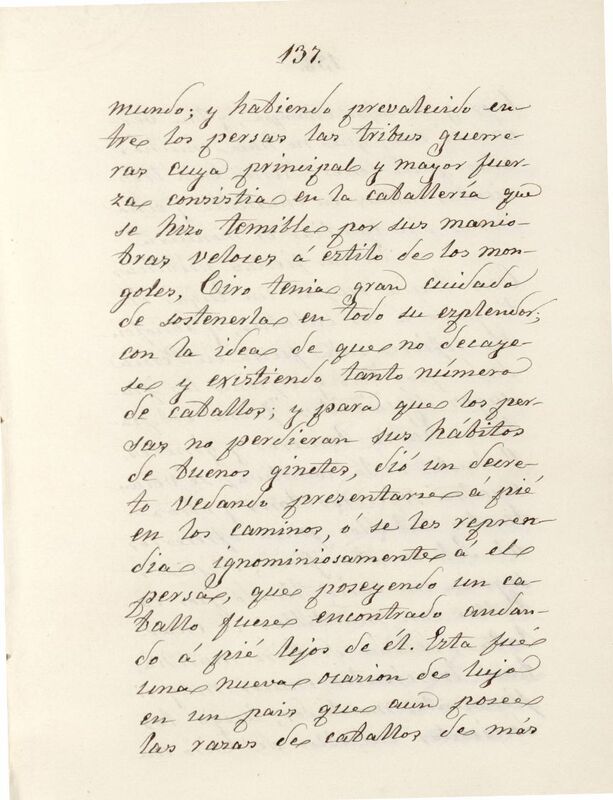 137.
mundo; y habiendo prevalecido en-
tre los persas las tribus guerre-
ras cuya principal y mayor fuer-
za consistia en la caballería que
se hizo temible por sus manio-
bras veloces á estilo de los mon-
goles, Ciro tenia gran cuidado
de sostenerla en todo su esplendor;
con la idea de que no decaye-
se y existiendo tanto número
de caballos; y para que los per-
sas no perdieran sus hábitos
de buenos ginetes, dió un decre-
to vedando presentarse á pié
en los caminos, ó se les repren-
dia ignominiosamente á el
persa, que poseyendo un ca-
ballo fuese encontrado andan-
do á pié lejos de él. Esta fué
una nueva ocasion de lujo
en un pais que aun posee
las razas de caballos de más